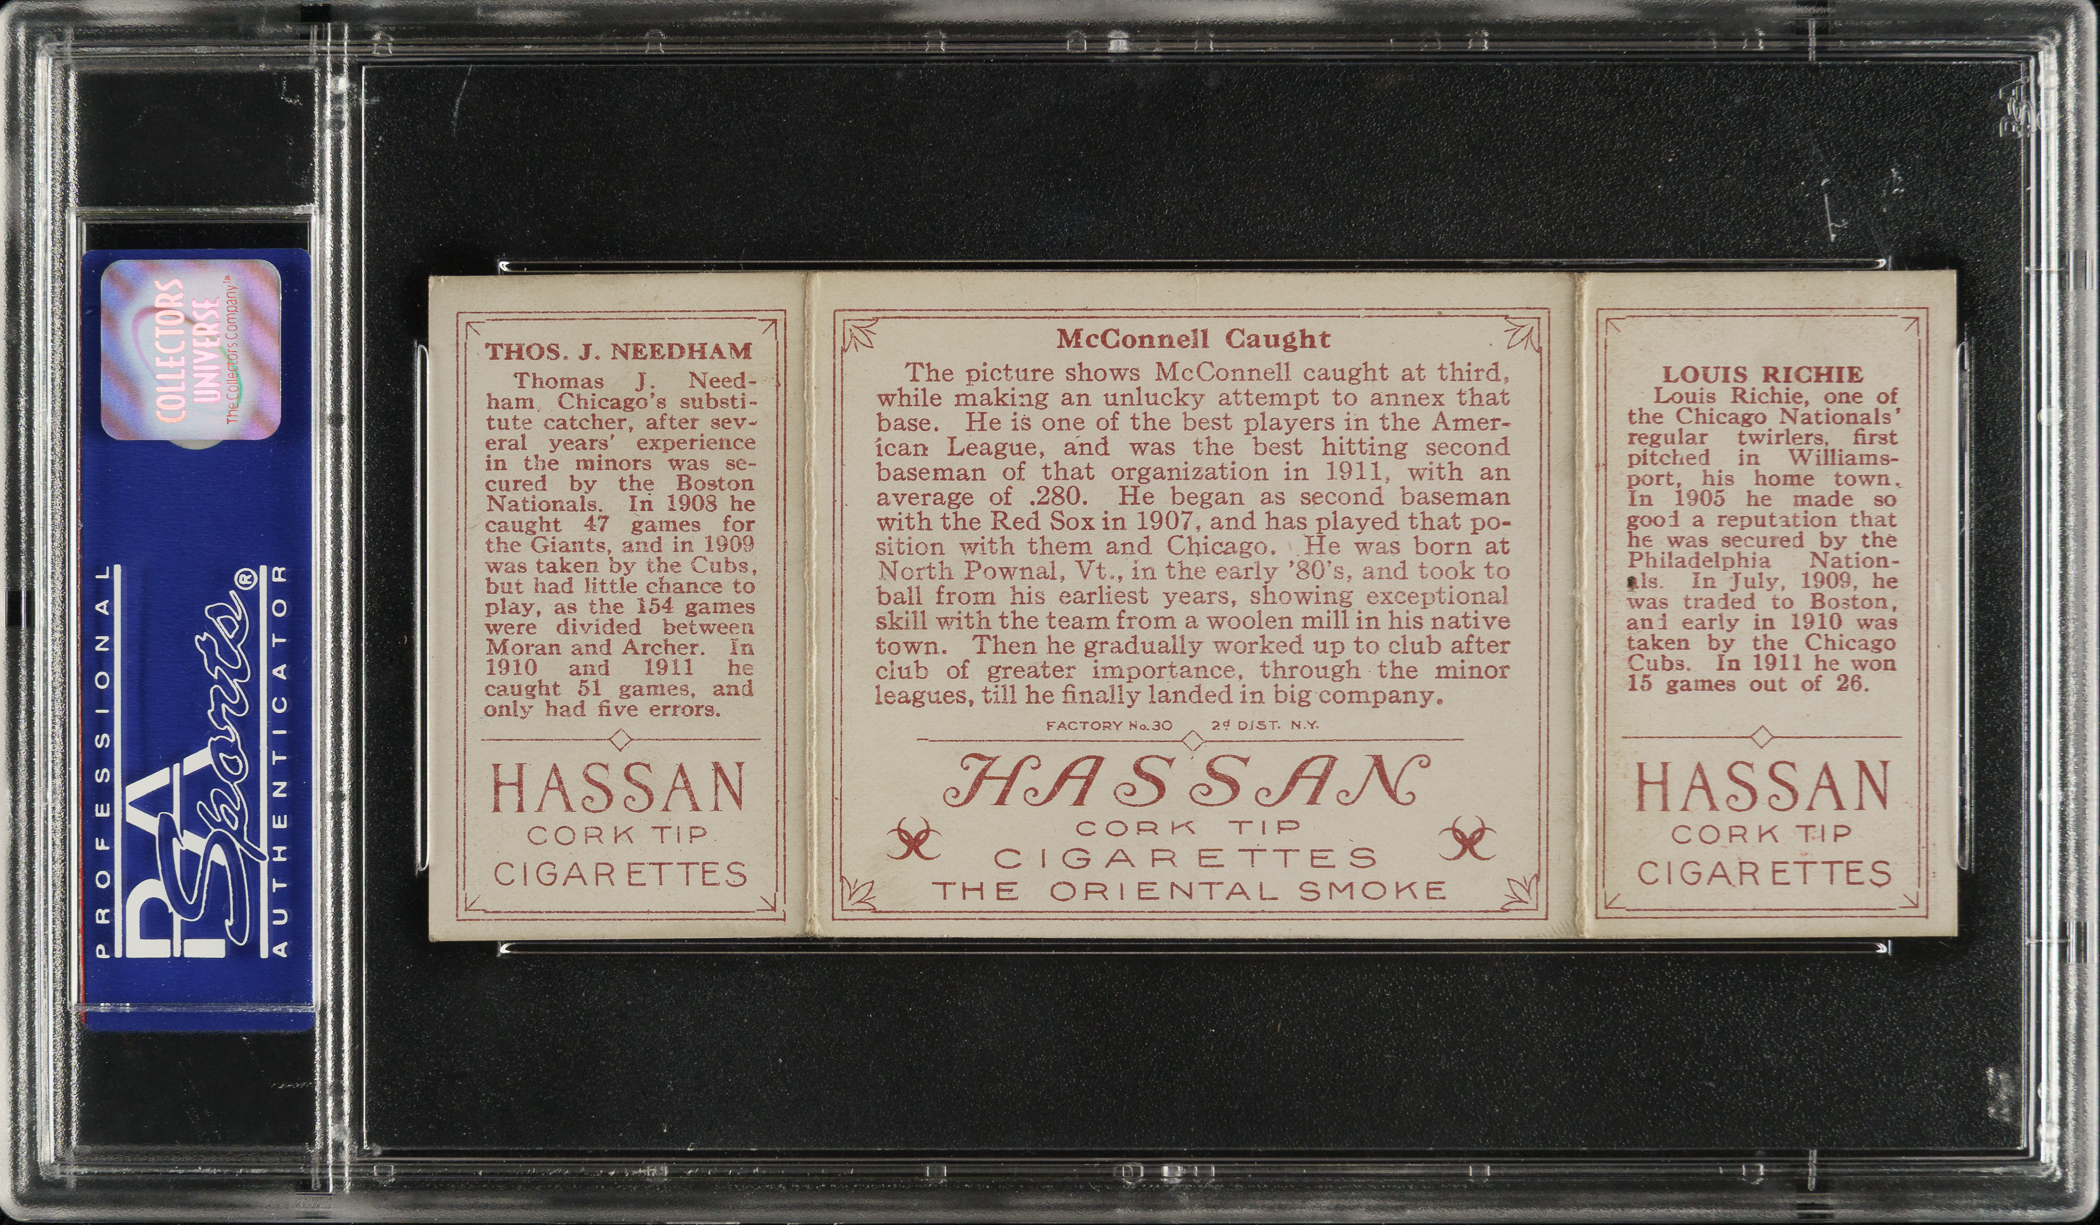 COLLECTORS
UNIVERSE
The Collectors Company™
PROFESSIONAL
PSA
Sports®
AUTHENTICATOR
THOS. J. NEEDHAM
Thomas J. Need-
ham, Chicago's substi-
tute catcher, after sev-
eral years' experience
in the minors was se-
cured by the Boston
Nationals. In 1908 he
caught 47 games for
the Giants, and in 1909
was taken by the Cubs,
but had little chance to
play, as the 154 games
were divided between
Moran and Archer. In
1910 and 1911 he
caught 51 games, and
only had five errors.
HASSAN
CORK TIP
CIGARETTES
McConnell Caught
The picture shows McConnell caught at third,
while making an unlucky attempt to annex that
base. He is one of the best players in the Amer-
ican League, and was the best hitting second
baseman of that organization in 1911, with an
average of .280. He began as second baseman
with the Red Sox in 1907, and has played that po-
sition with them and Chicago. He was born at
North Pownal, Vt., in the early '80's, and took to
ball from his earliest years, showing exceptional
skill with the team from a woolen mill in his native
town. Then he gradually worked up to club after
club of greater importance, through the minor
leagues, till he finally landed in big company.
FACTORY No. 30 2d DIST. N.Y.
HASSAN
CORK TIP
CIGARETTES
THE ORIENTAL SMOKE
LOUIS RICHIE
Louis Richie, one of
the Chicago Nationals'
regular twirlers, first
pitched in Williams-
port, his home town.
In 1905 he made so
good a reputation that
he was secured by the
Philadelphia Nation-
als. In July, 1909, he
was traded to Boston,
and early in 1910 was
taken by the Chicago
Cubs. In 1911 he won
15 games out of 26.
HASSAN
CORK TIP
CIGARETTES
PSA